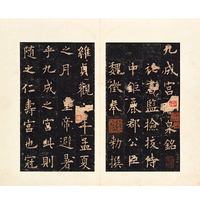 九成宮泉銘
書監撿挍侍
中鉅鹿郡公臣
魏徵奉 勅撰
維貞觀年孟夏
之月 帝避暑
乎九成之宮此則
隨之仁壽宮也冠